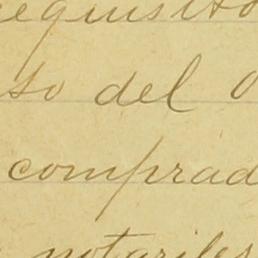 requisito
so del
comprad
notariles